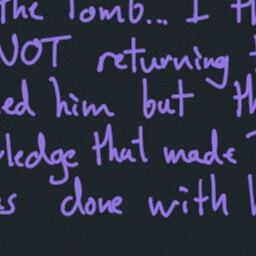 the Tomb... I th
NOT returning t
ed him but th
ledge that made T
as done with h